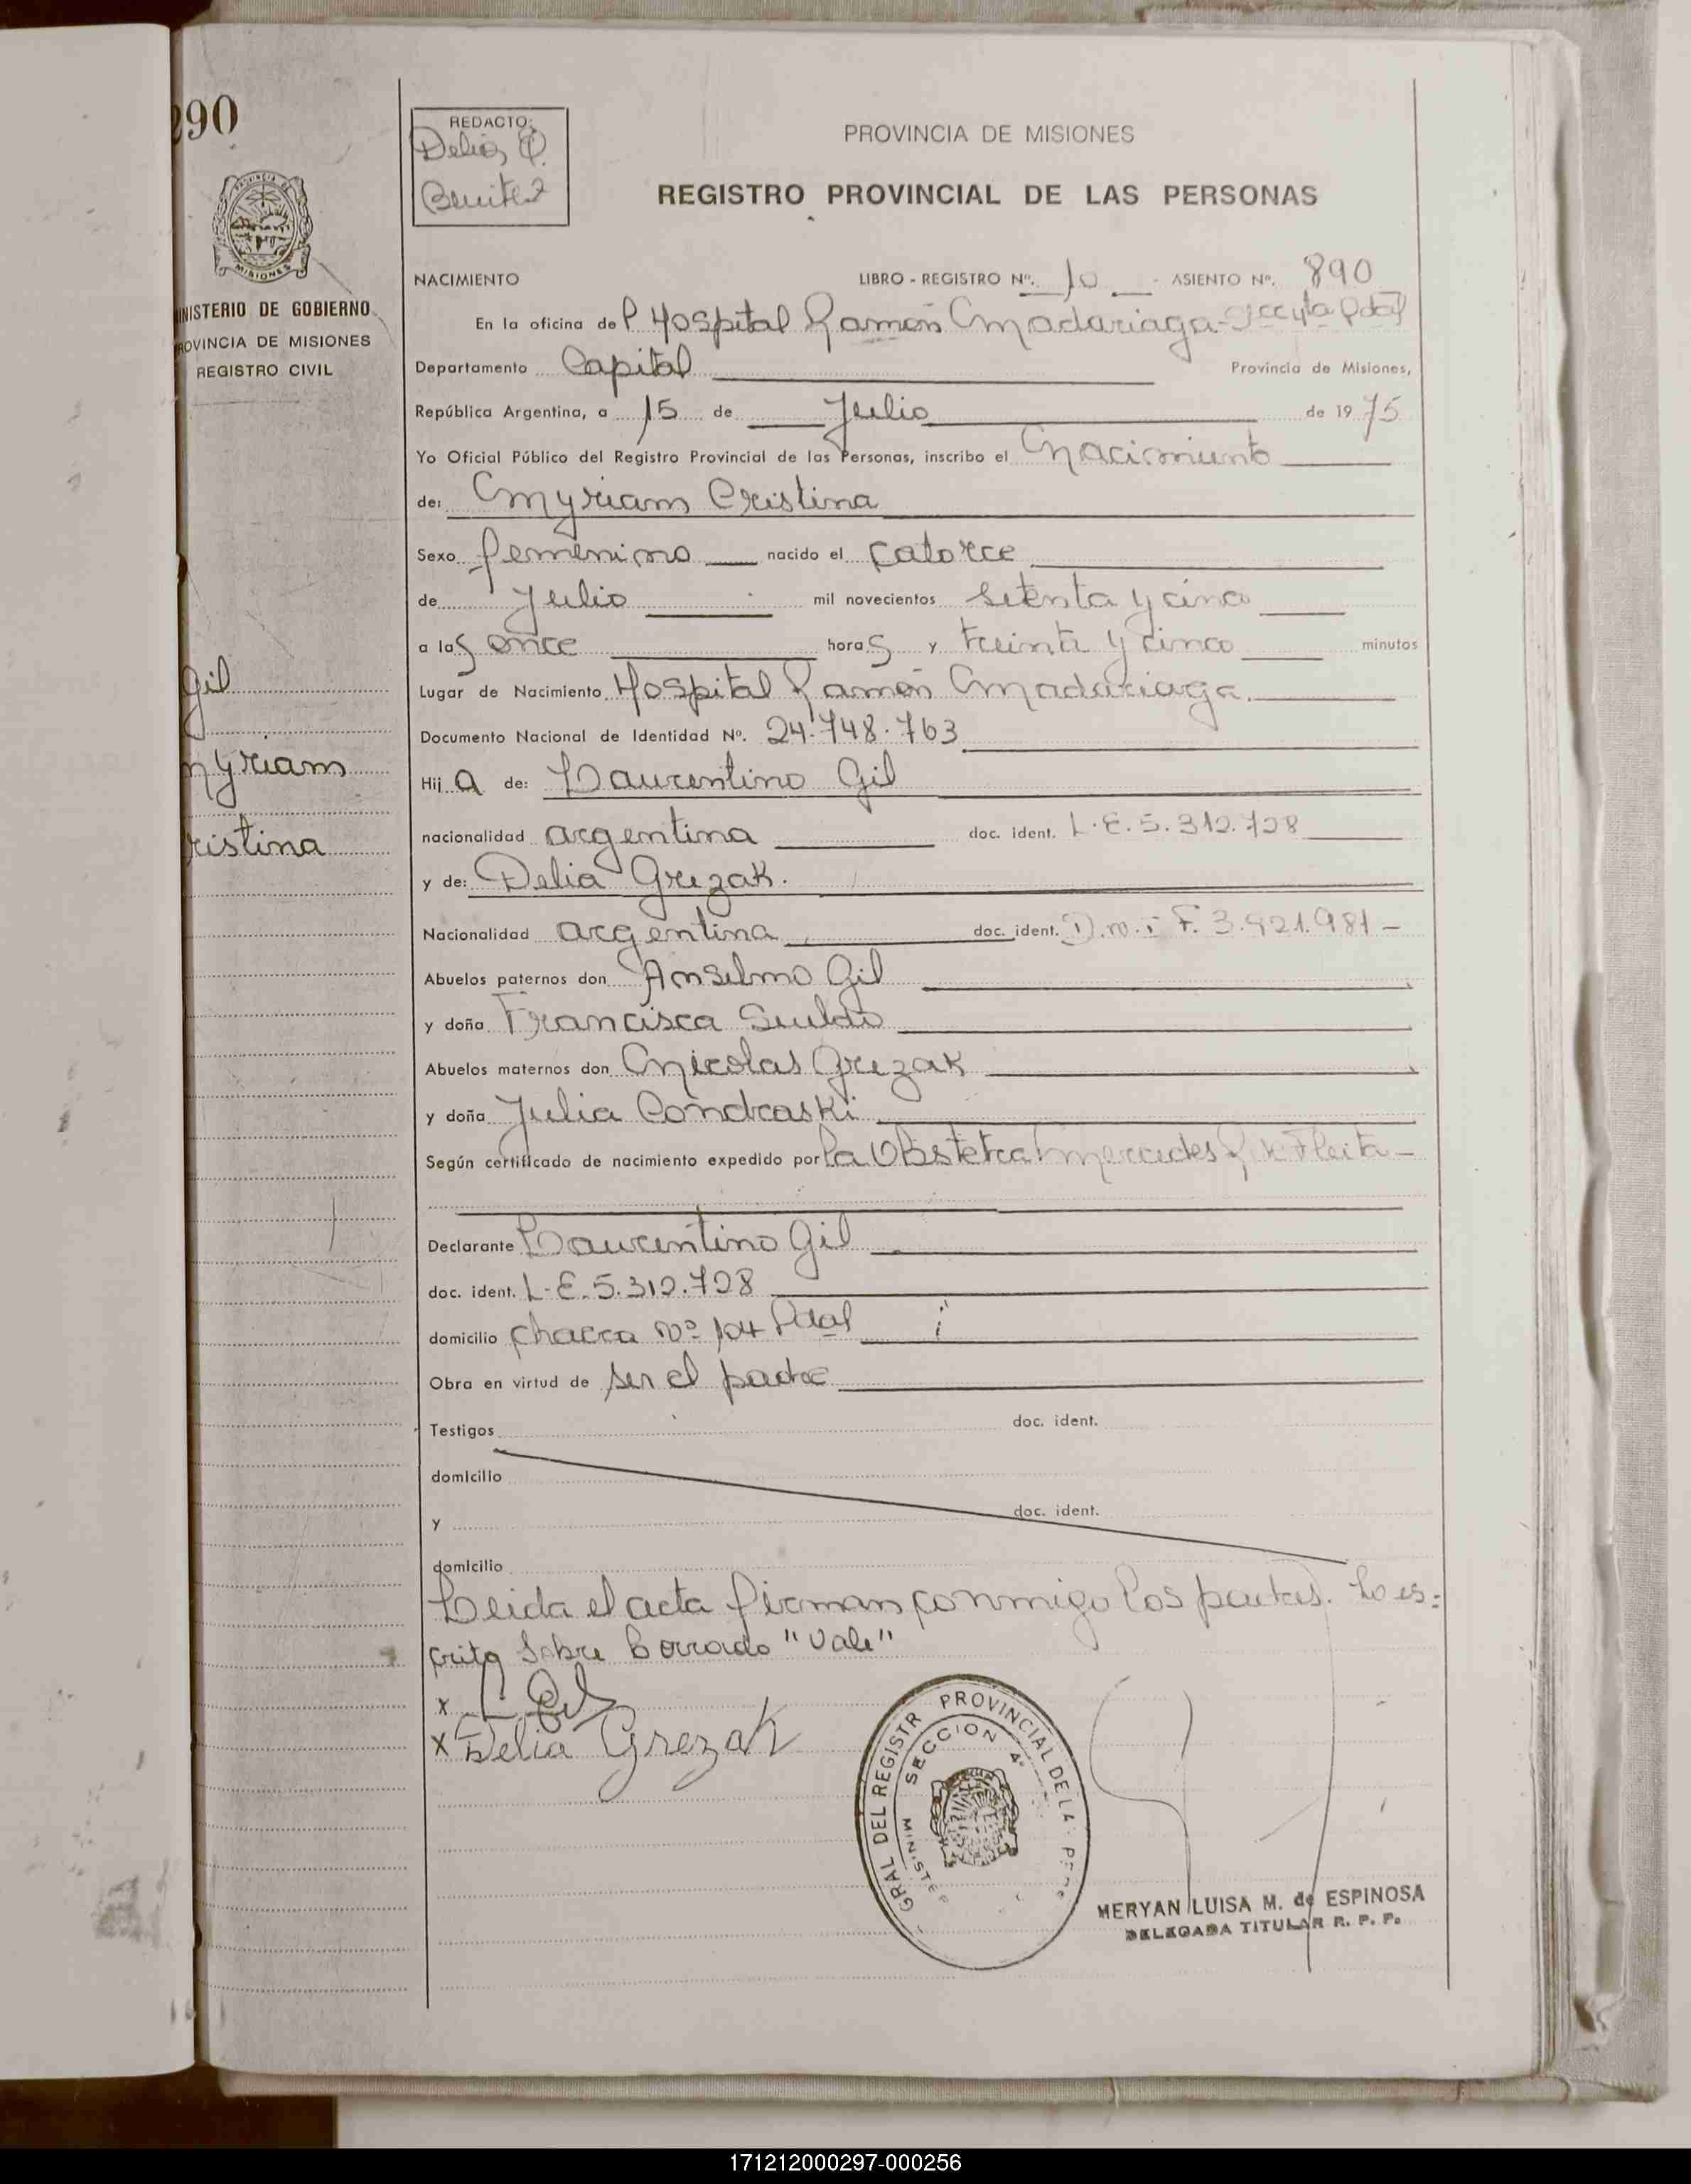 290
MINISTERIO DE GOBIERNO
PROVINCIA DE MISIONES
REGISTRO CIVIL
Gil
Myriam
Cristina
REDACTO:
Delia
Benitez
PROVINCIA DE MISIONES
REGISTRO PROVINCIAL DE LAS PERSONAS
NACIMIENTO LIBRO - REGISTRO Nº. 10 - ASIENTO Nº. 890
En la oficina de Hospital Ramón Madariaga
Departamento Capital Provincia de Misiones,
República Argentina, a 15 de Julio de 1975
Yo Oficial Público del Registro Provincial de las Personas, inscribo el Nacimiento
de: Myriam Cristina
Sexo femenino nacido el catorce
de Julio mil novecientos setenta y cinco
a las once horas y treinta y cinco minutos
Lugar de Nacimiento Hospital Ramón Madariaga.
Documento Nacional de Identidad Nº. 24.748.763
Hija de: Laurentino Gil
nacionalidad argentina doc. ident. L.E. 5.312.728
y de: Delia Grezak.
Nacionalidad argentina doc. ident. D.N.I F. 3.921.981 -
Abuelos paternos don Anselmo Gil
y doña Francisca
Abuelos maternos don Nicolas Grezak
y doña Julia Condraski
Según certificado de nacimiento expedido por la Obstetra Mercedes Fleita -
Declarante Laurentino Gil
doc. ident. L.E. 5.312.728
domicilio chacra Nº 104 Pdas
Obra en virtud de ser el padre
Testigos doc. ident.
domicilio
y doc. ident.
domicilio
Leida el acta firman conmigo los padres. Lo es=
crito sobre borrado "Vale"
x L. Gil
x Delia Grezak
GRAL DEL REGISTR PROVINCIAL DE LA PERS
SECCION 4º
MINISTER
MERYAN LUISA M. de ESPINOSA
DELEGADA TITULAR R. P. P.
171212000297-000256